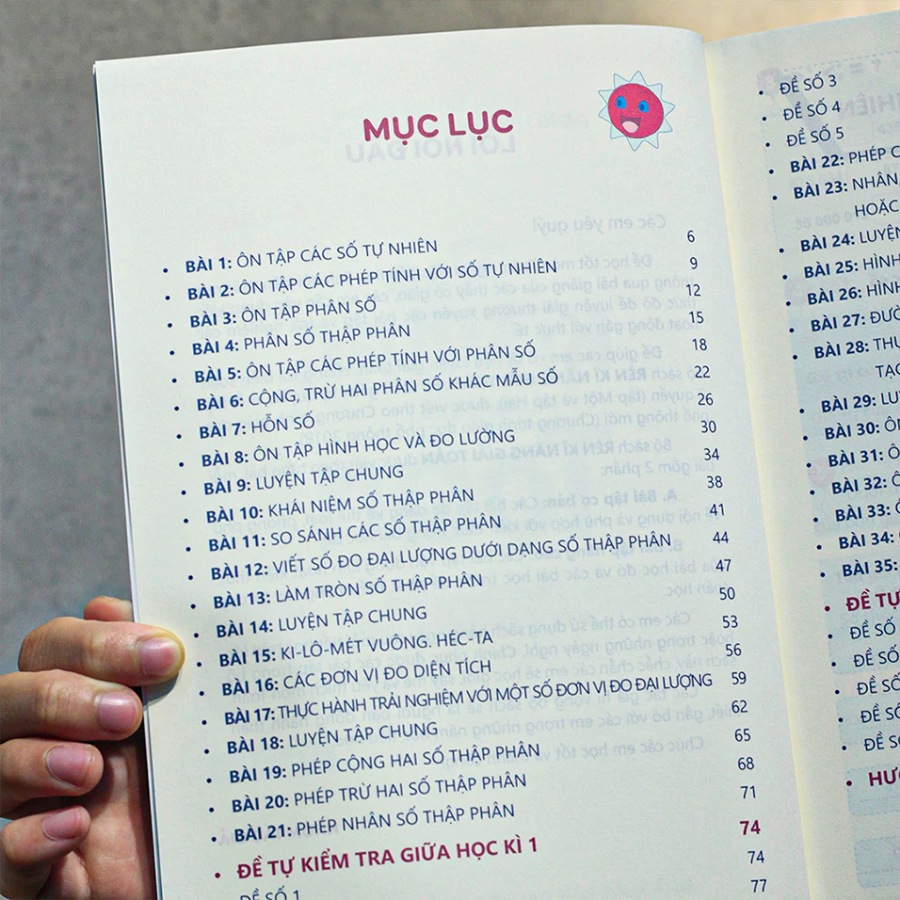 MỤC LỤC
BÀI 1: ÔN TẬP CÁC SỐ TỰ NHIÊN 6
BÀI 2: ÔN TẬP CÁC PHÉP TÍNH VỚI SỐ TỰ NHIÊN 9
BÀI 3: ÔN TẬP PHÂN SỐ 12
BÀI 4: PHÂN SỐ THẬP PHÂN 15
BÀI 5: ÔN TẬP CÁC PHÉP TÍNH VỚI PHÂN SỐ 18
BÀI 6: CỘNG, TRỪ HAI PHÂN SỐ KHÁC MẪU SỐ 22
BÀI 7: HỖN SỐ 26
BÀI 8: ÔN TẬP HÌNH HỌC VÀ ĐO LƯỜNG 30
BÀI 9: LUYỆN TẬP CHUNG 34
BÀI 10: KHÁI NIỆM SỐ THẬP PHÂN 38
BÀI 11: SO SÁNH CÁC SỐ THẬP PHÂN 41
BÀI 12: VIẾT SỐ ĐO ĐẠI LƯỢNG DƯỚI DẠNG SỐ THẬP PHÂN 44
BÀI 13: LÀM TRÒN SỐ THẬP PHÂN 47
BÀI 14: LUYỆN TẬP CHUNG 50
BÀI 15: KI-LÔ-MÉT VUÔNG. HÉC-TA 53
BÀI 16: CÁC ĐƠN VỊ ĐO DIỆN TÍCH 56
BÀI 17: THỰC HÀNH TRẢI NGHIỆM VỚI MỘT SỐ ĐƠN VỊ ĐO ĐẠI LƯỢNG 59
BÀI 18: LUYỆN TẬP CHUNG 62
BÀI 19: PHÉP CỘNG HAI SỐ THẬP PHÂN 65
BÀI 20: PHÉP TRỪ HAI SỐ THẬP PHÂN 68
BÀI 21: PHÉP NHÂN SỐ THẬP PHÂN 71
ĐỀ TỰ KIỂM TRA GIỮA HỌC KÌ 1 74
ĐỀ SỐ 1 74
77
ĐỀ SỐ 3
ĐỀ SỐ 4
ĐỀ SỐ 5
BÀI 22: PHÉP
BÀI 23: NHÂN,
HOẶC
BÀI 24: LUYỆN
BÀI 25: HÌNH
BÀI 26: HÌNH
BÀI 27:
BÀI 28:
BÀI 29:
BÀI 30:
BÀI 31:
BÀI 32:
BÀI 33:
BÀI 34:
BÀI 35:
ĐỀ TỰ
ĐỀ SỐ
ĐỀ SỐ
ĐỀ SỐ
ĐỀ SỐ
ĐỀ SỐ